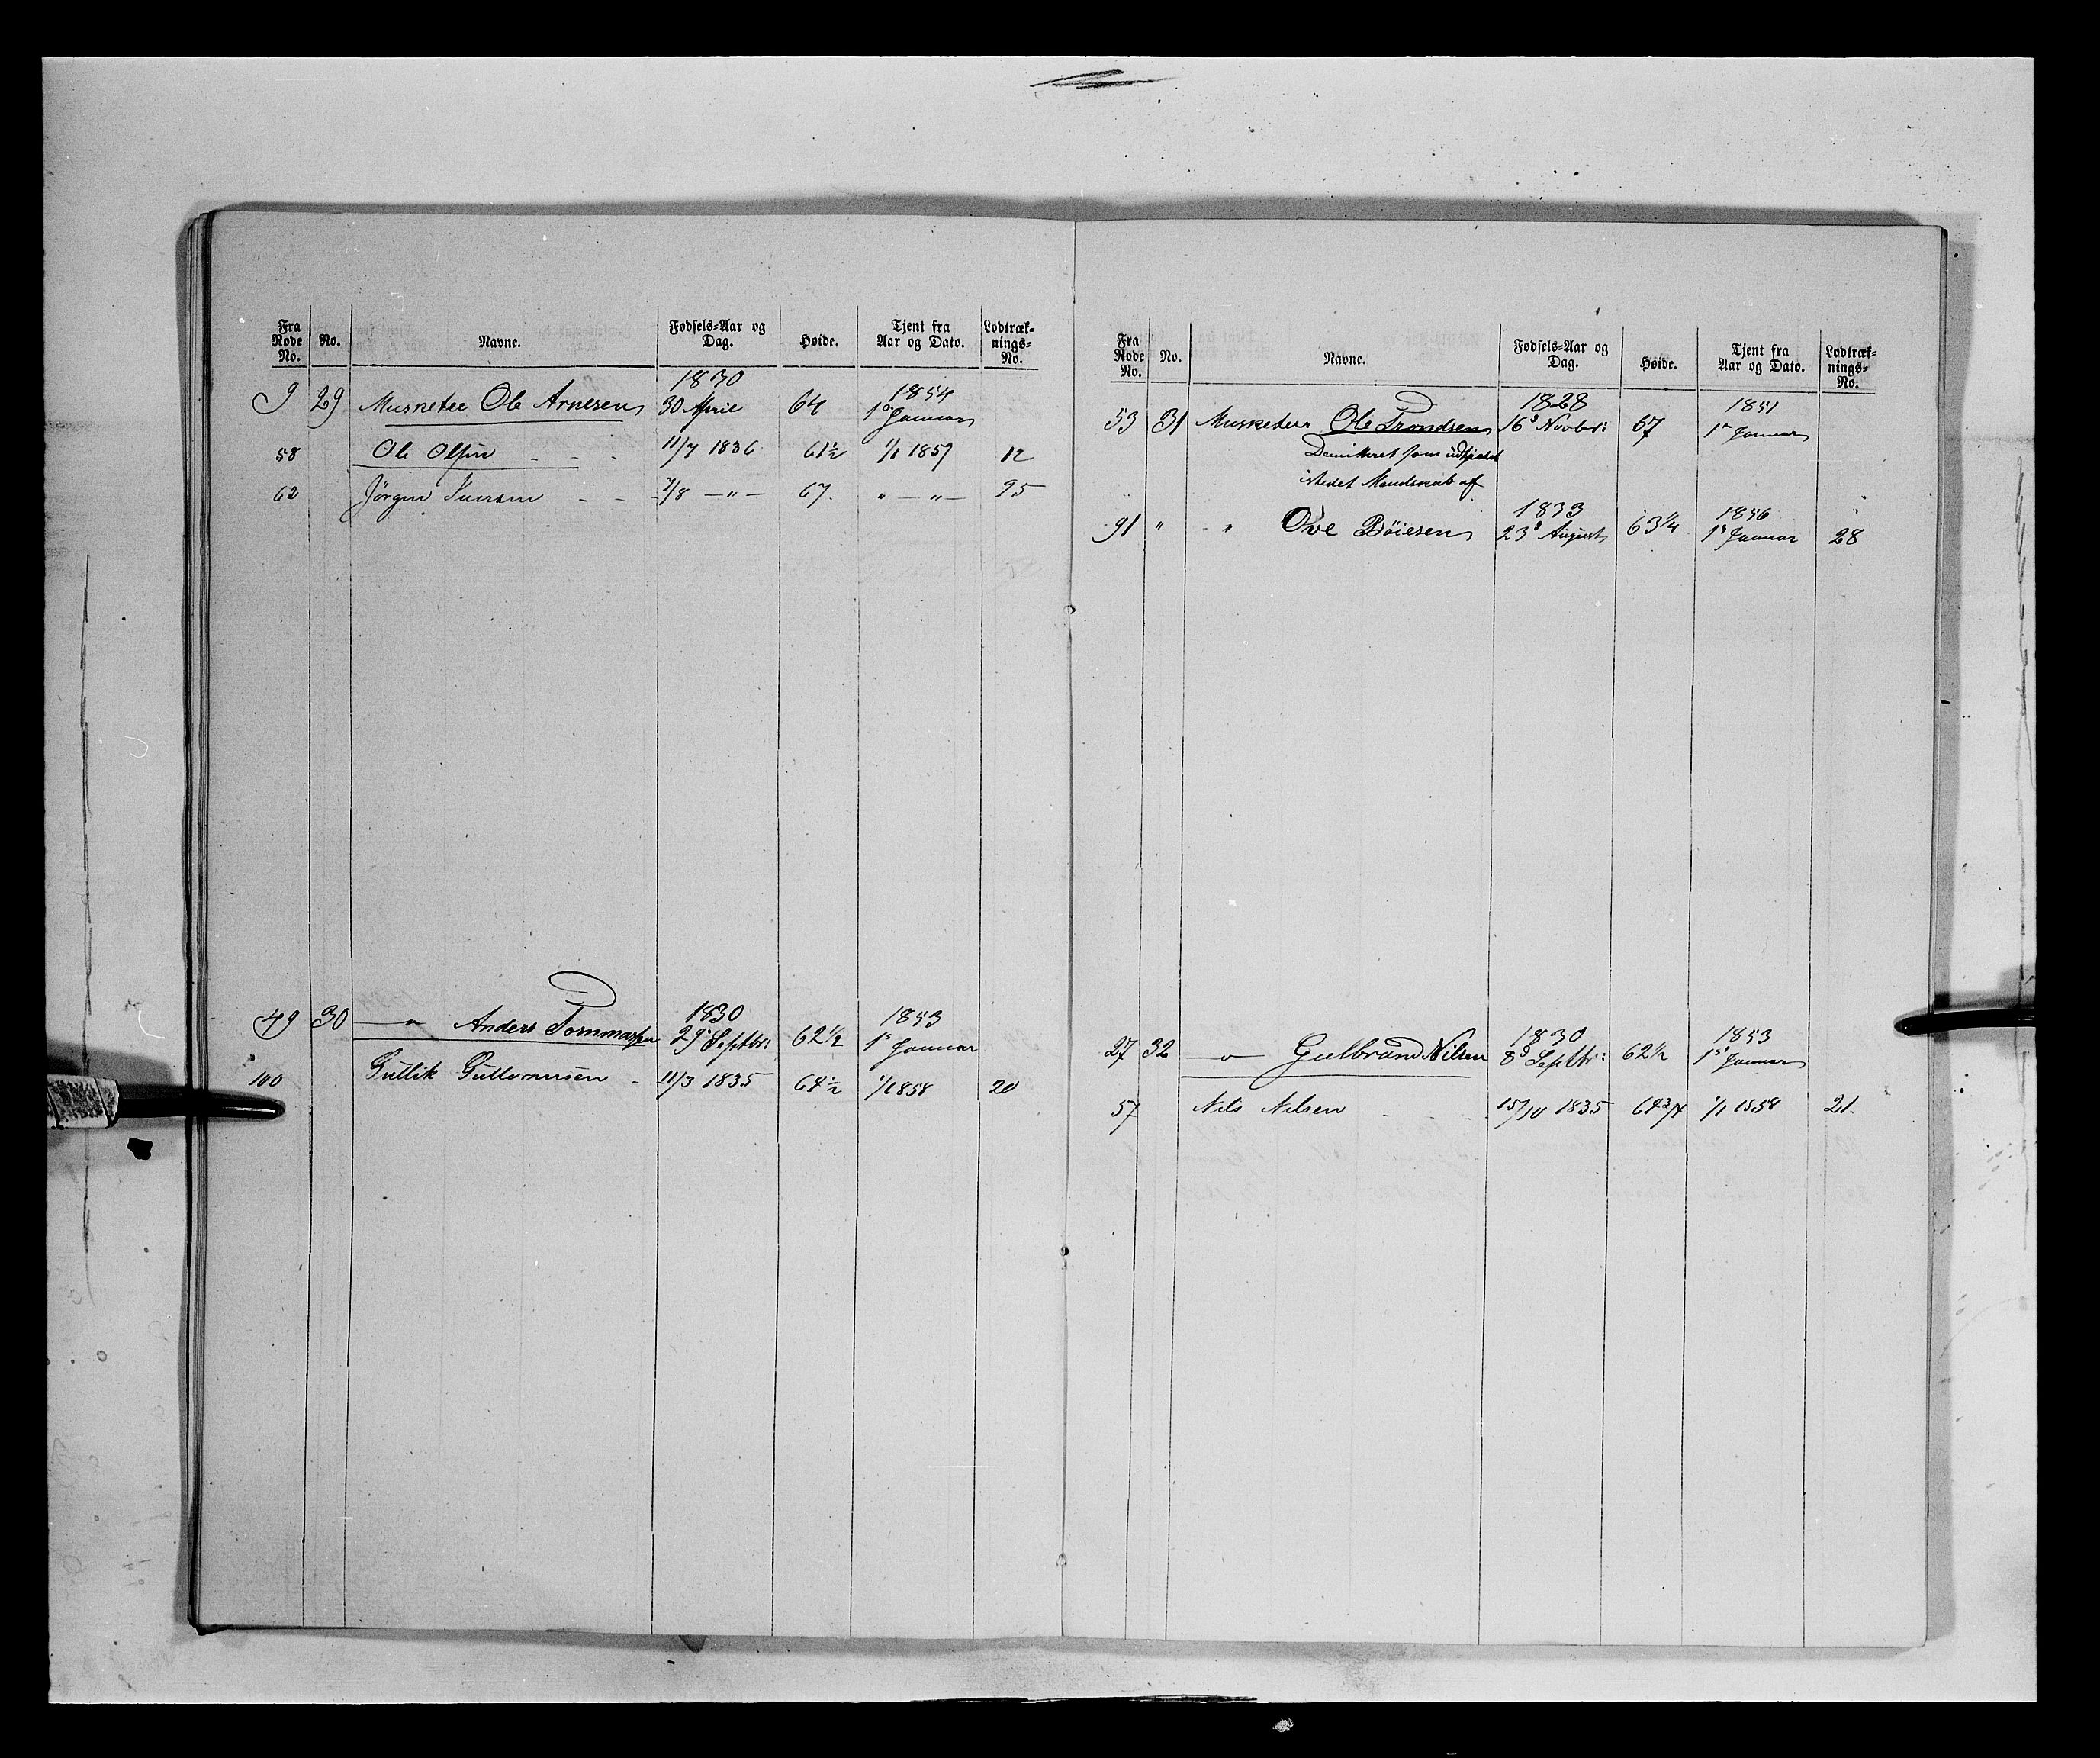 Fra Rode No. | No. | Navne. | Fødsels-Aar og Dag. | Høide. | Tjent fra Aar og Dato. | Lodtræk-nings-No.
9 | 29 | Musketer Ole Arnesen | 1830 30 April | 64 | 1854 1ste Januar
58 | Ole Olsen - - - | 11/7 1836 | 61½ | 1/1 1857 | 12
62 | Jørgen Iversen - - | 7/8 — " — | 67. | " — " — | 95
49 | 30 | —"— Anders Tommasen | 1830 29 Septbr: | 62½ | 1853 1 Januar
100 | Gullik - | 11/3 1835 | 64½ | 1/1 1858 | 20
Fra Rode No. | No. | Navne. | Fødsels-Aar og Dag. | Høide. | Tjent fra Aar og Dato. | Lodtræk-nings-No.
53 | 31 | Musketeer Ole Trondsen | 1828 16d Novbr: | 67 | 1851 1 Januar
som udtjent
istedet Mandskab af
91 | " | " Ove Böiesen | 1833 23d August | 63¼ | 1856 1 Januar | 28
27 | 32 | —"— Gulbrand Nilsen | 1830 8d Septbr: | 62½ | 1853 1 Januar
57 | Nils Nilsen - - - | 15/10 1835 | 64¾ | 1/1 1858 | 21.